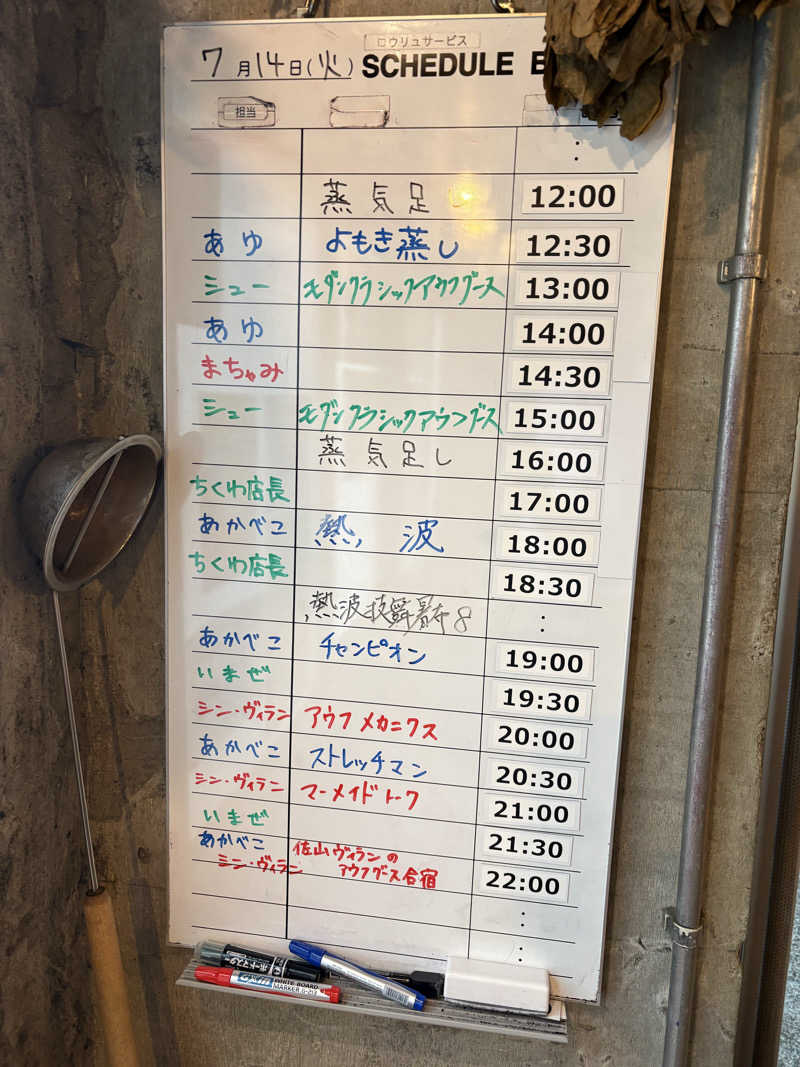 ロウリュサービス
7月14日(火) SCHEDULE B
担当
蒸気足し 12:00
あゆ よもぎ蒸し 12:30
ミュー モダンクラシックアウフグース 13:00
あゆ 14:00
まちゃみ 14:30
ミュー モダンクラシックアウフグース 15:00
蒸気足し 16:00
ちくわ店長 17:00
あかべこ 熱波 18:00
ちくわ店長 18:30
熱波技舞 :
あかべこ チャンピオン 19:00
いまぜ 19:30
シン・ヴィラン アウフメカニクス 20:00
あかべこ ストレッチマン 20:30
シン・ヴィラン マーメイドトーク 21:00
いまぜ 21:30
あかべこ 佐山ヴィランの
シン・ヴィラン アウフグース合宿 22:00
ボードマスター
WHITE BOARD
MARKER